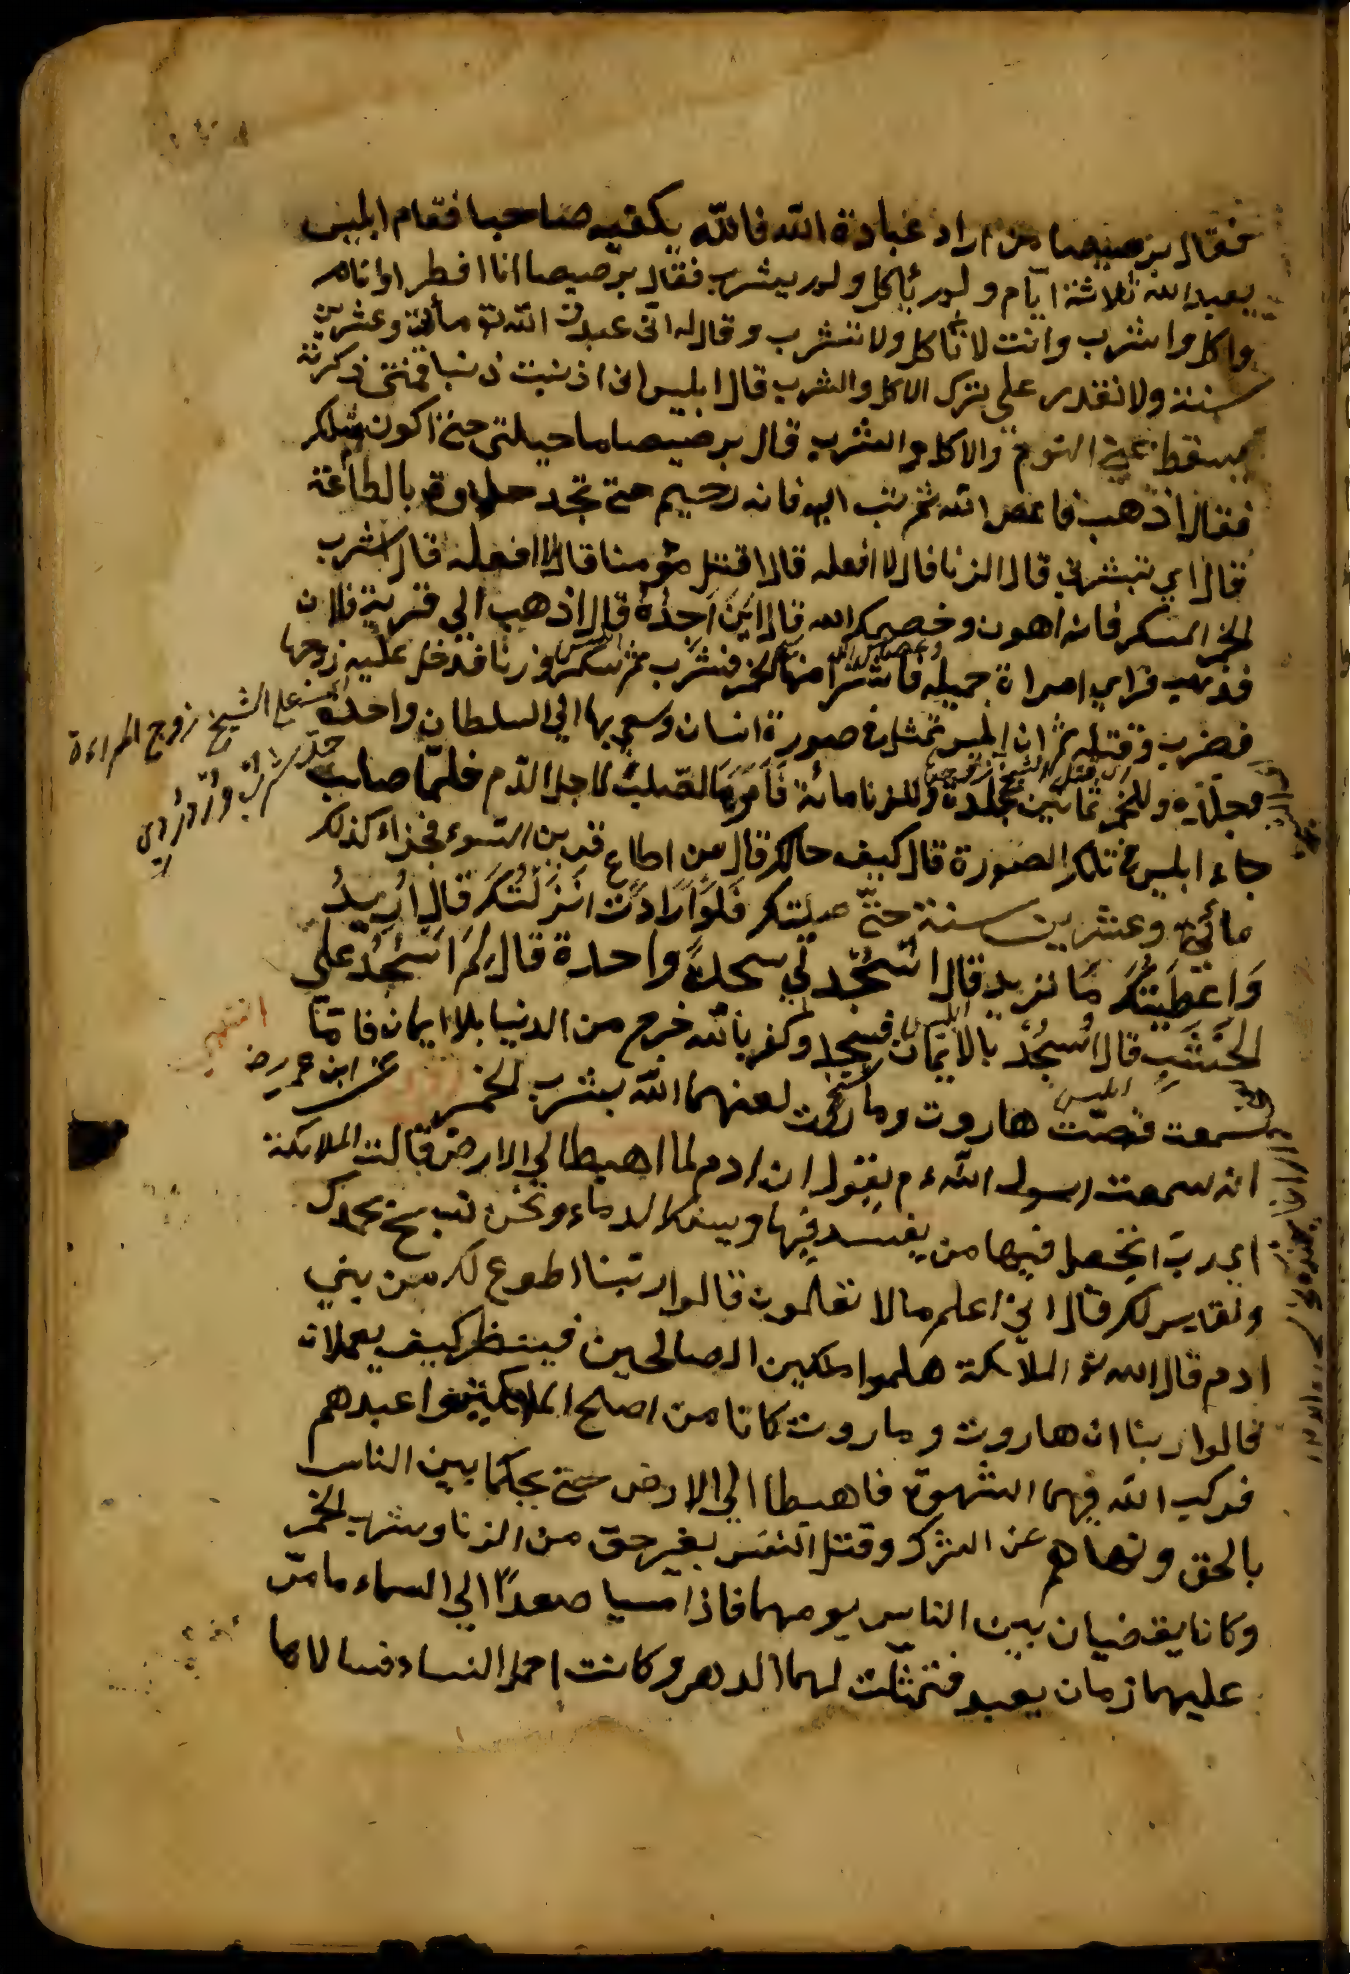 فقال برصيصا من اراد عبادة الله فالله يكفيه صاحبا فقام ابليس
يعبد الله ثلاثة ايّام ولم يأكل ولم يشرب فقال برصيصا انا افطر وانام
واكل واشرب وانت لا تأكل ولا تشرب وقال له انى عبدت الله تع مأتين وعشرين
سنة ولا نقدر على ترك الاكل والشرب قال ابليس انى اذنبت ذنبا فمتى ذكرته
يسقط عنى النوم والاكل والشرب قال برصيصا ما حيلتى حتى اكون مثلك
فقال اذهب فاعص الله ثم تب اليه فانه رحيم حتى تجد حلاوة بالطاعة
قال اي شئ قال الزنا قال لا افعله قال اقتل مؤمنا قال لا افعله قال اشرب
الخمر المسكر فانه اهون وخصمك الله قال اَيْنَ اَجِدُهُ قال اذهب الي قرية فلان
فذهب فراي امراة جميله فاشترا منها الخمر فشرب ثم سكر وزنا فدخل عليه زوجها
فضرب وقتله ثم ان ابليس تمثل في صورة انسان وسعي بها الي السلطان واخذه
فجلده وللخمر ثمانين جلدة وللزنا مائة فَاَمَرَ بالصّلب لاجل الدّم فلمّا صلب
جاء ابليس في تلك الصورة قال كيف حالك قال من اطاع قرين السّوء فجزاء كذلك
مأتي وعشرين سنة حتّى صلبتك فَلَوْ اَرَدْتَ اَنْزَلْتُكَ قال اُرِيدُ
وَاَعْطَيْتُكَ مَا تريد قال اُسْجُدْ لي سجدةً واحدة قال كَمْ اَسْجُدُ علي
الخَشَبِ قال اُسْجُدْ بالايمان فسجد وكفر بالله خرج من الدنيا بلا ايمان فامّا
سمعت قصّت هاروت وماروت لعنهما الله بشرب الخمر عن ابن عمر رضـ
انه سمعت رسول الله ءم يقول ان ادم لما اهبط الي الارض قالت الملائكة
اي ربّ اتجعل فيها من يفسد فيها ويسفك الدماء ونحن نسبح بحمدك
ونقدس لك قال انى اعلم ما لا تعلمون قالوا ربّنا اطوع لك من بني
ادم قال الله تع الملائكة هلموا ملكين الصالحين فينظر كيف يعملان
قالوا ربنا ان هاروت وماروت كانا من اصلح الملائكة واعبدهم
فركب الله فيهما الشهوة فاهبطا الي الارض حتى يحكما بين الناس
بالحق ونهاهم عن الشرك وقتل النفس بغير حق من الزنا وشرب الخمر
وكانا يقضيان بين الناس يومهما فاذا امسيا صعداً الي السماء ما مرّ
عليهما زمان يعبد فتمثّلت لهما الدهر وكانت اجمل النساء فسالاها
الشيخ زوج المراءة
ابليس